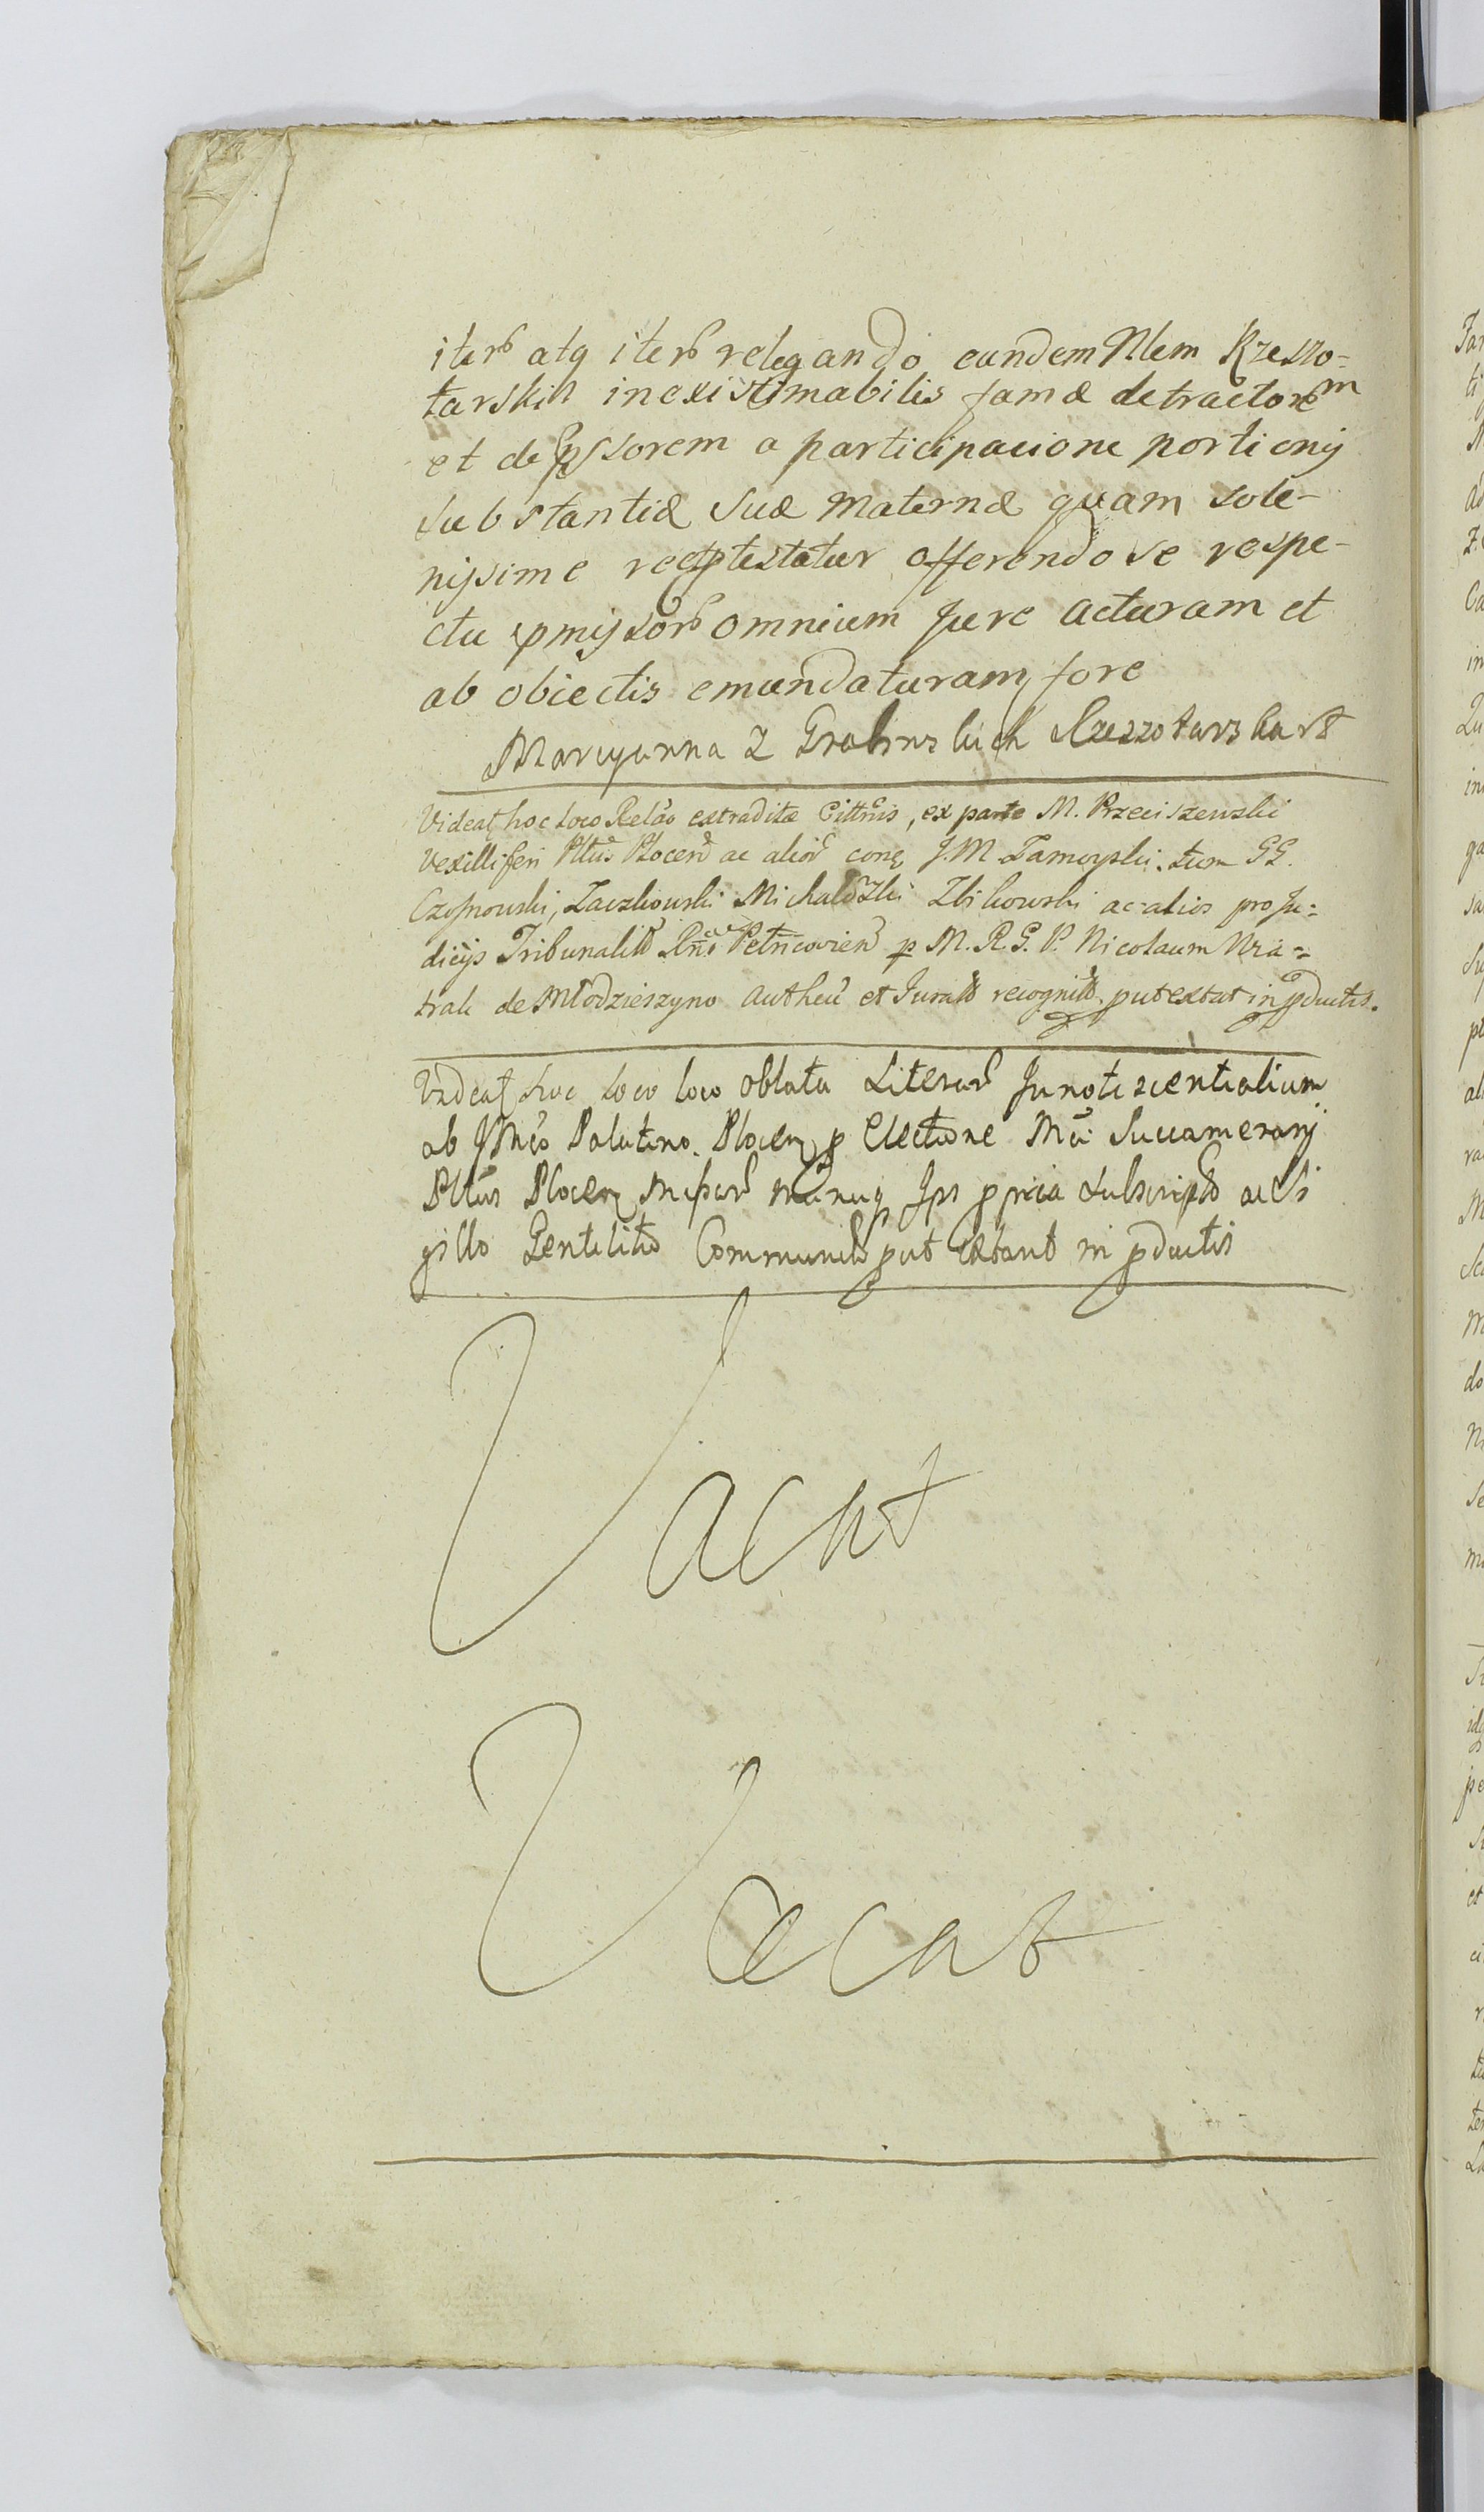 iterb atq iterb relegando eundem Nlem Rzeszo=
tarskin inexistimabilis famæ detractorem
et depssorem a participacione portionis
substantiæ suæ maternæ quam sole-
nissime reptestatur offerendo se respe-
ctu pmissorb omnium Jure acturam et
ab obiectis emundaturam fore
Maryanna z Grabinskich Rzeszotarska
Videat hoc loco Relão extraditæ Cittnis, ex parte M. Przeciszewski
Vexilliferi Pltus Plocen ac alior conq J.M. Zamoyski. tum GG.
Czosnowski, Zaczkowski Michalozki Zbikowski ac alios pro Ju=
dicijs Tribunalib Rni Petricovien p M. R. G. P. Nicolaum Wia=
trak de Młodzieszyno Authen et Jurat recognit put extat in pductis.
Videat hoc loco loco oblata Literar Innotescentialium
ab JMco Palatino Plocen p Electione Mci Succamerarij
Pltus Plocen manuq Ips ppria subscript ac Si
gillo Gentilitio Communit put extant in pductis
Vacat
Vacat